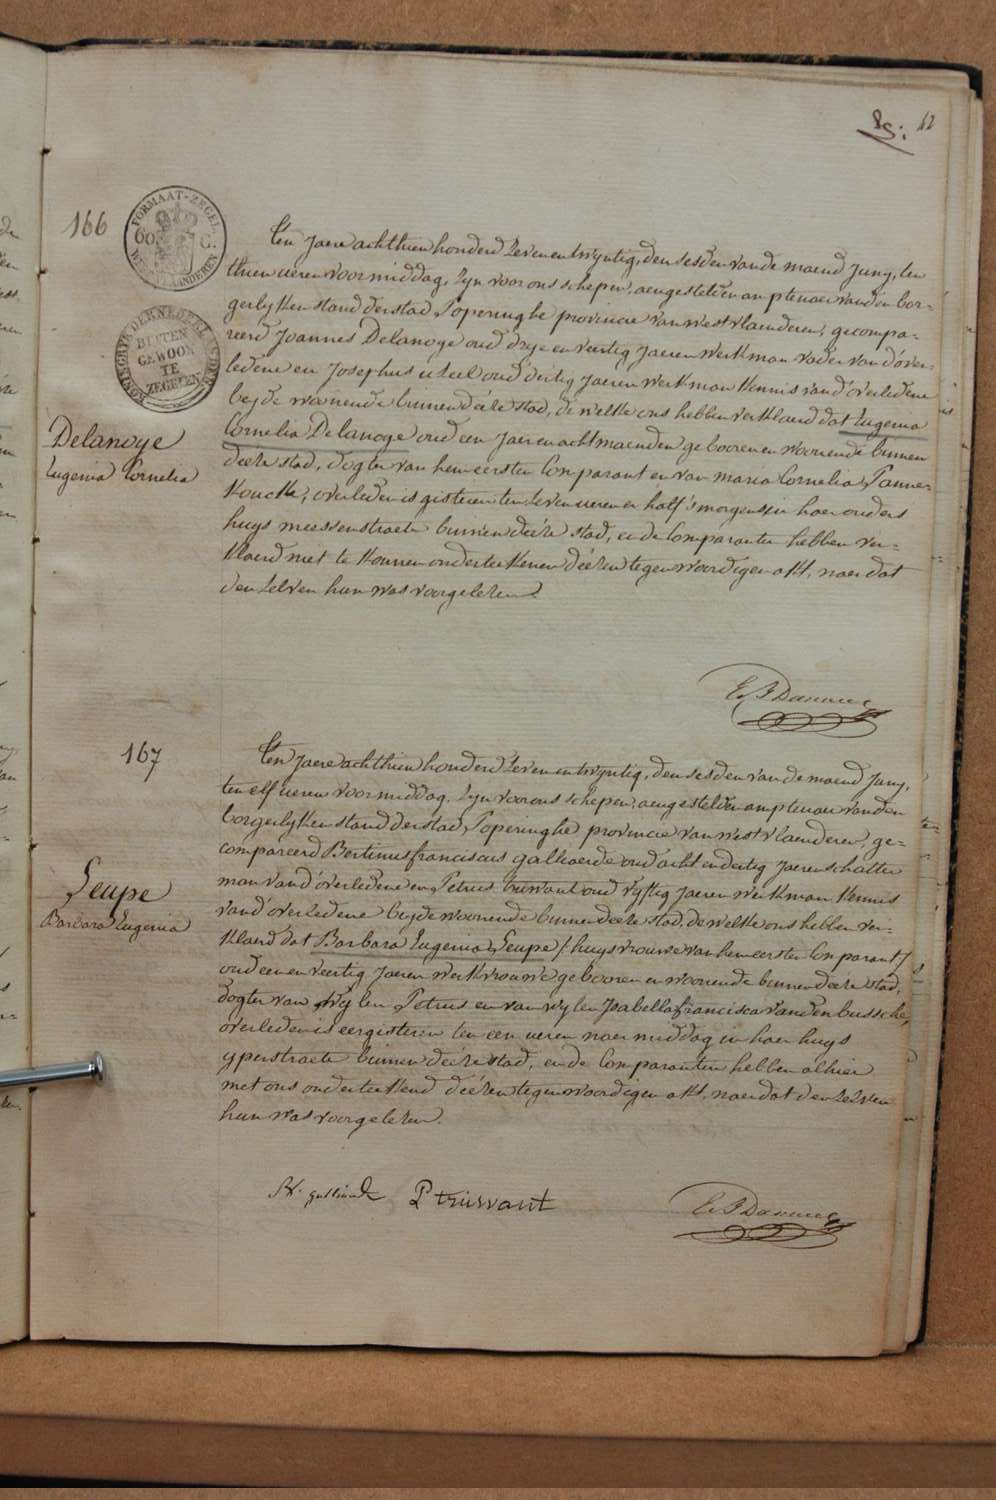 82: 62
166
FORMAAT-ZEGEL
60 C.
WEST-VLAANDEREN
KONINGRYK DER NEDERLANDEN
BUITEN
GEWOON
TE
ZEGELEN
Delanoye
Eugenia Cornelia
Ten jaere achthien honderd zeven en twyntig, den sesden vande maend Juny, ten
thien ueren voormiddag, zyn voor ons schepen, aengestelden amptenaer van den bor-
gerlyken stand der stad Poperinghe provincie van westvlaenderen, gecompa-
reerd Joannes Delanoye oud drye en veertig jaeren werkman vader van d'over-
ledene en Josephus oud dertig jaeren werkman kennis van d'overledene
beyde woonende binnen deéze stad, de welke ons hebben verklaerd dat Eugenia
Cornelia Delanoye oud een jaer en acht maenden gebooren en woonende binnen
deéze stad, dogter van hem eersten Comparant en van maria Cornelia Panne-
koucke, overleden is gisteren ten zeven ueren en half 's morgens in haer ouders
huys meessenstraete binnen deéze stad, en de Comparanten hebben ver-
klaerd niet te konnen onderteekenen deézen tegenwoordigen akt, naer dat
den zelven hun was voorgelezen.
167
Leupe
Barbara Eugenia
Ten jaere achthien honderd zeven en twyntig, den sesden van de maend Juny,
ten elf ueren voormiddag, zyn voor ons schepen, aengestelden amptenaer van den
borgerlyken stand der stad Poperinghe provincie van westvlaenderen, ge-
compareerd Bertinus franciscus galliaerde oud acht en dertig jaeren schatter
man van d'overledene en Petrus truwant oud vyftig jaeren werkman kennis
van d'overledene beyde woonende binnen deéze stad, de welke ons hebben ver-
klaerd dat Barbara Eugenia Leupe /huysvrouwe van hem eersten Comparant/
oud een en veertig jaeren werkvrouwe gebooren en woonende binnen deéze stad,
dogter van wylen Petrus en van wylen Isabella francisca vanden bussche,
overleden is eergisteren ten een ueren naermiddag in haer huys
yperstraete binnen deéze stad, en de Comparanten hebben alhier
met ons onderteekend deézen tegenwoordigen akt, naer dat den zelven
hun was voorgelezen.
P truwant